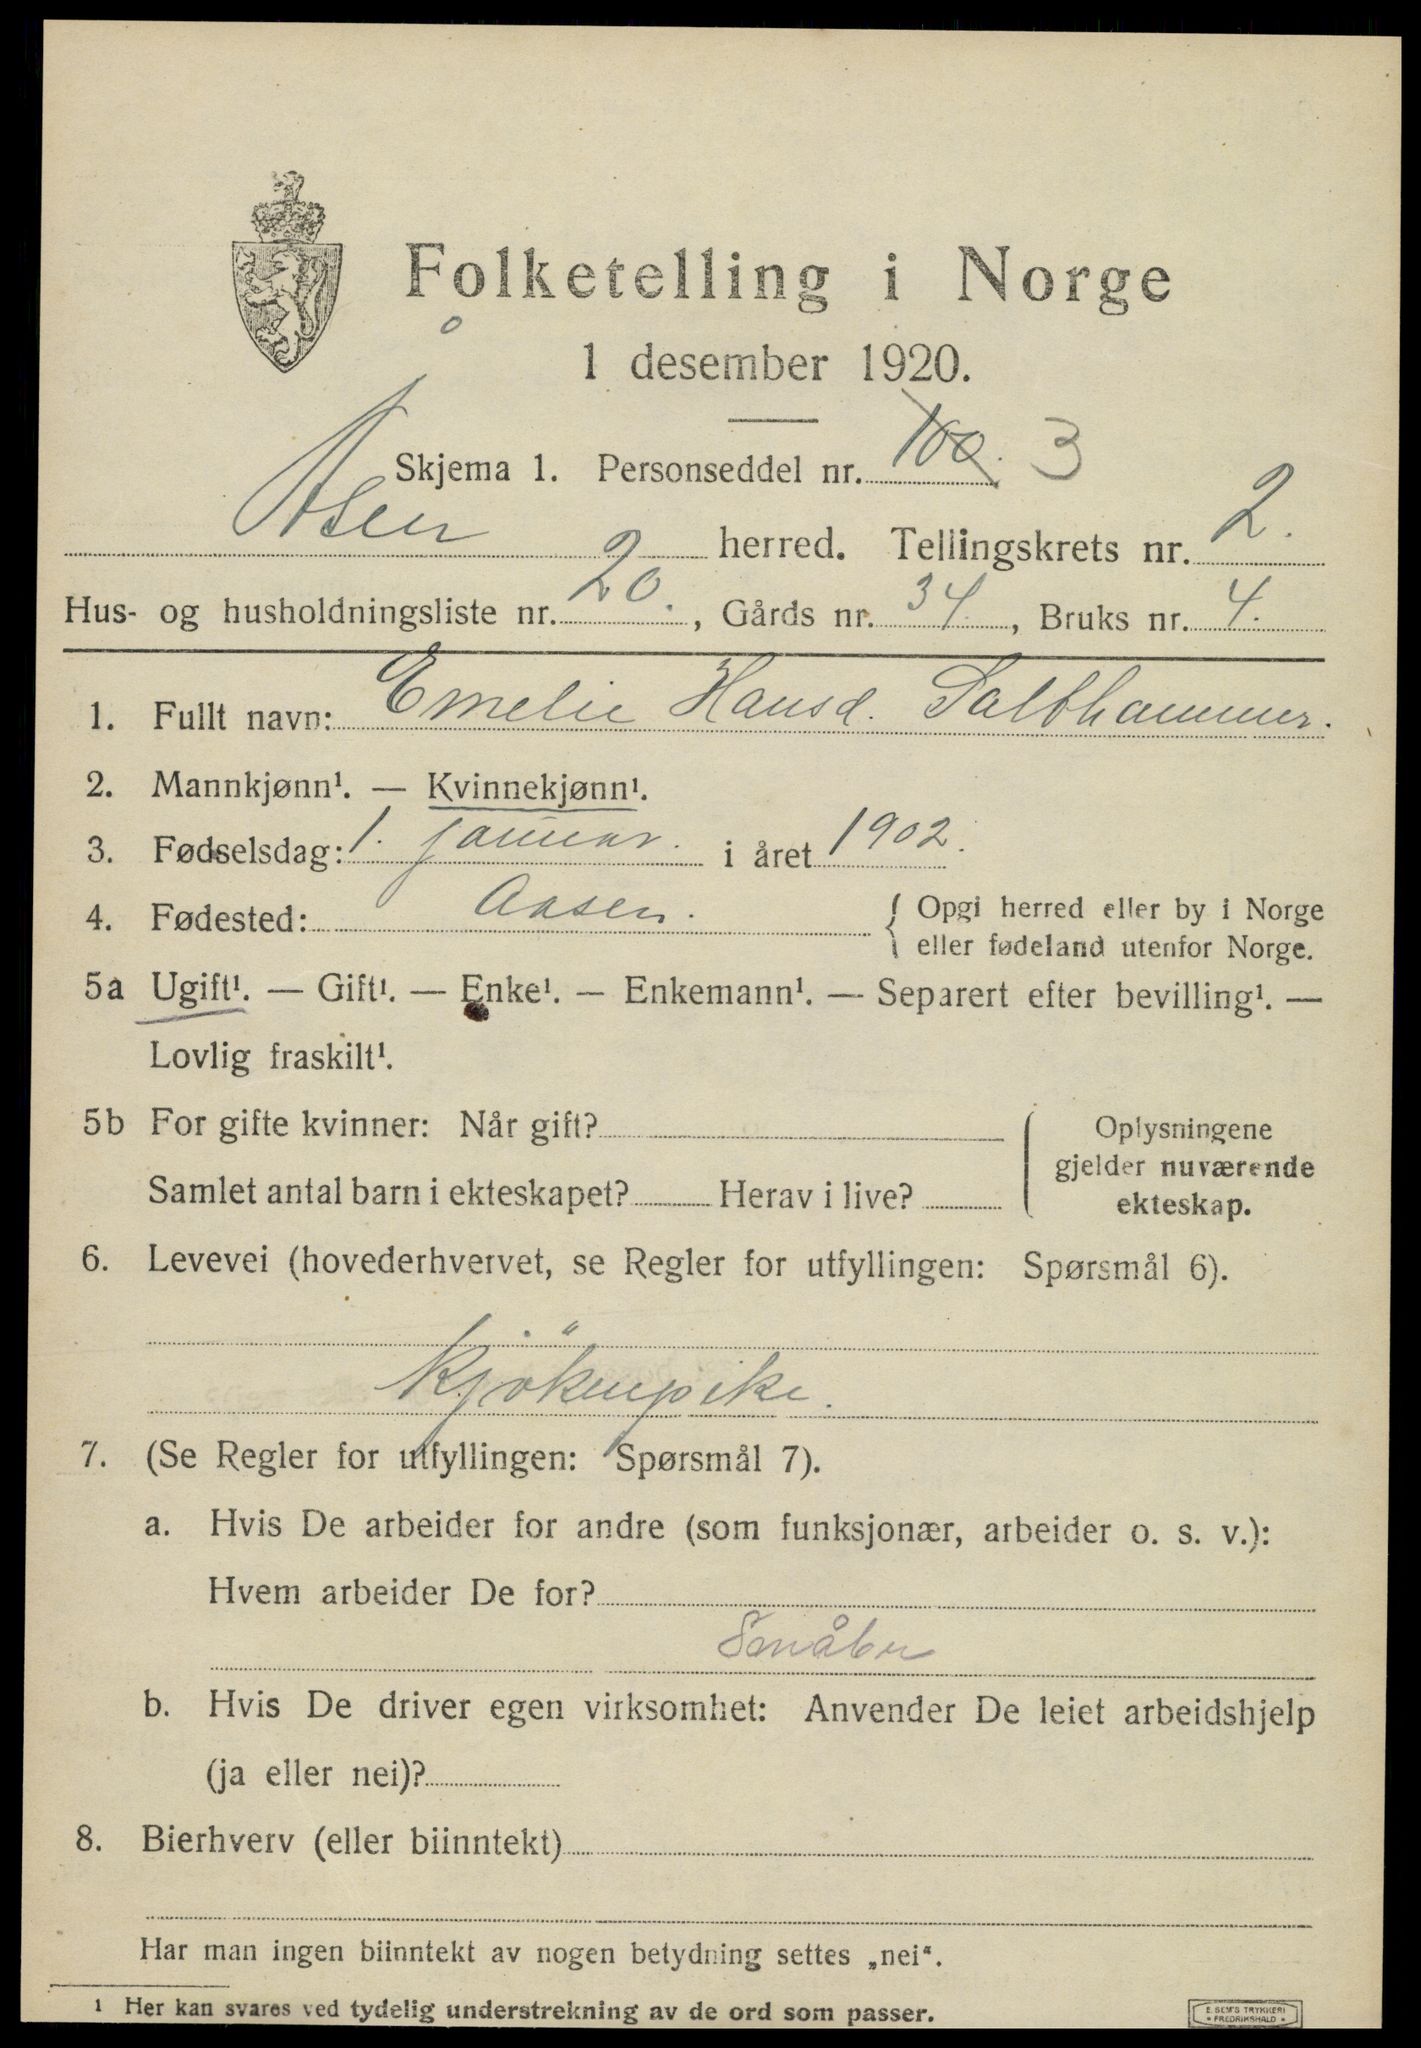 Folketelling i Norge
1 desember 1920.
Skjema 1. Personseddel nr. 100. 3
Åsen herred. Tellingskrets nr. 2.
Hus- og husholdningsliste nr. 20., Gårds nr. 34., Bruks nr. 4.
1. Fullt navn: Emelie Hansd. Salthammer.
2. Mannkjønn¹. — Kvinnekjønn¹.
3. Fødselsdag: 1. januar. i året 1902.
4. Fødested: Aasen. { Opgi herred eller by i Norge
eller fødeland utenfor Norge.
5a Ugift¹. — Gift¹. — Enke¹. — Enkemann¹. — Separert efter bevilling¹. —
Lovlig fraskilt¹.
5b For gifte kvinner: Når gift?
Samlet antal barn i ekteskapet? Herav i live?
Oplysningene
gjelder nuværende
ekteskap.
6. Levevei (hovederhvervet, se Regler for utfyllingen: Spørsmål 6).
Kjökenpike.
7. (Se Regler for utfyllingen: Spørsmål 7).
a. Hvis De arbeider for andre (som funksjonær, arbeider o. s. v.):
Hvem arbeider De for?
Småbr
b. Hvis De driver egen virksomhet: Anvender De leiet arbeidshjelp
(ja eller nei)?
8. Bierhverv (eller biinntekt)
Har man ingen biinntekt av nogen betydning settes „nei“.
1 Her kan svares ved tydelig understrekning av de ord som passer.
E. SEM'S TRYKKERI
* FREDRIKSHALD *